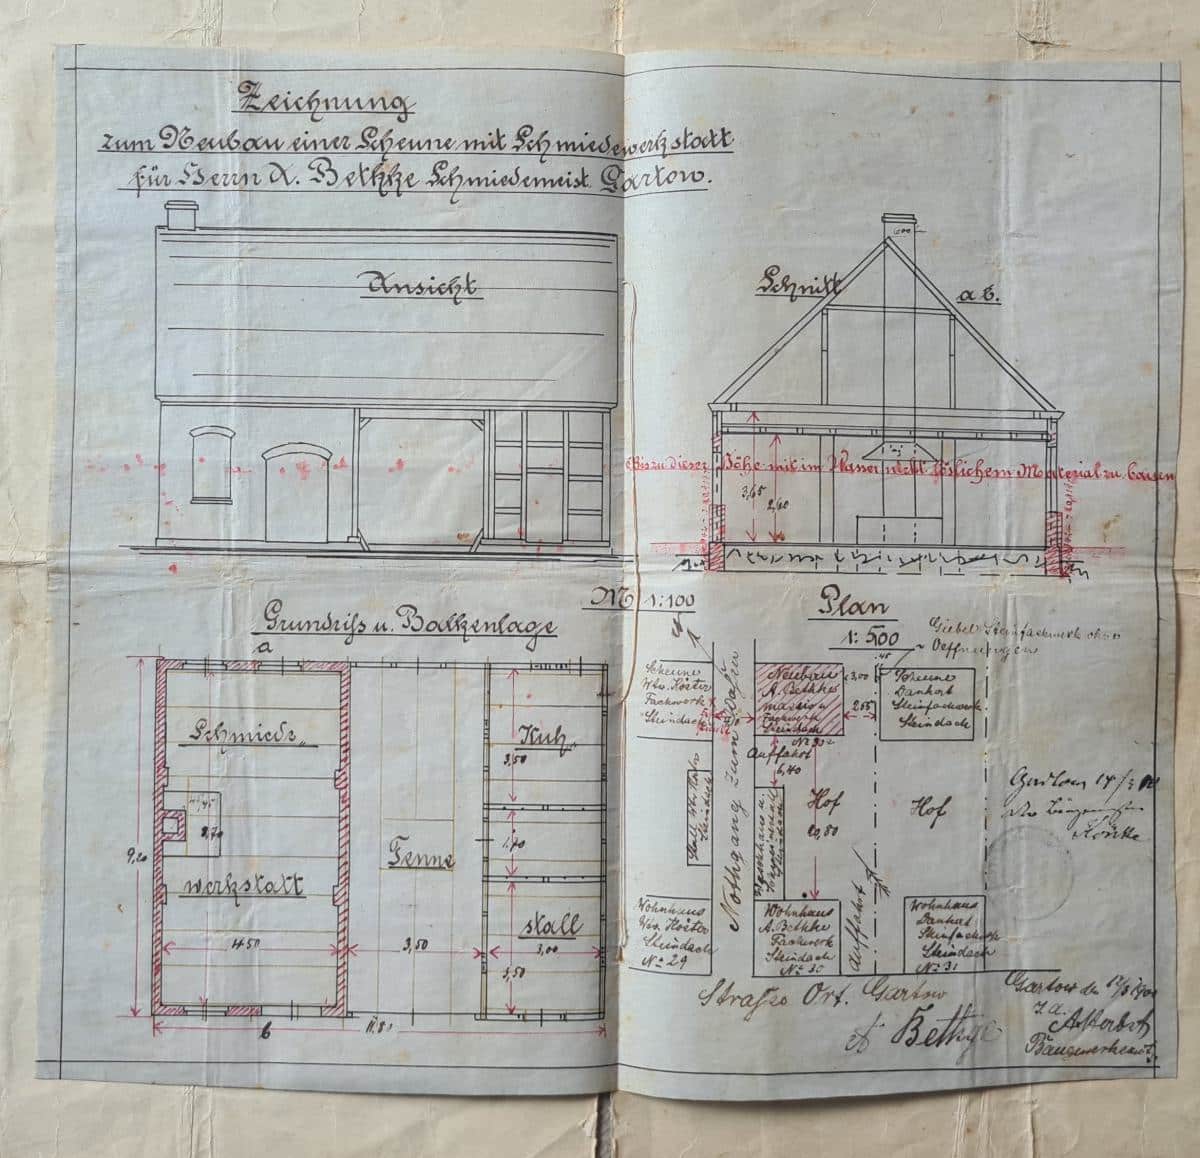 Zeichnung
zum Neubau einer Scheune mit Schmiedewerkstatt
für Herrn A. Bethke Schmiedemeist. Gartow.
Ansicht
Schnitt a b.
600
Bis zu dieser Höhe mit im Wasser nicht löslichem Material zu bauen
3,65
2,60
M 1:100
Grundriss u. Balkenlage
a
Schmiede
werkstatt
Tenne
Kuh
stall
9,20
2,70
3,50
1,70
3,50
4,50
3,50
3,00
11,80
b
Plan
1:500
Giebel Steinfachwerk ohne
Oeffnungen
Scheune
Ww. Köster
Fachwerk
Steindach
Neubau
A. Bethke
massiv u.
Fachwerk
Steindach
No 30
3,00
2,55
Scheune
Dankert
Steinfachwerk
Steindach
Auffahrt
6,40
Nothgang zum
Hof
20,80
Hof
Auffahrt
Wohnhaus
Ww. Köster
Steindach
No 29
Wohnhaus
A. Bethke
Fachwerk
Steindach
No 30
Wohnhaus
Dankert
Steinfachwerk
Steindach
No 31
Strasse Ort. Gartow
A Bethge
Gartow
Gartow den
I. A.